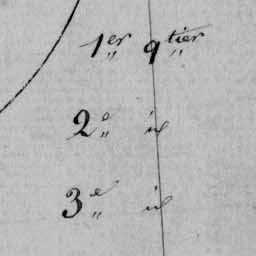 1er qtier
2e id
3e id